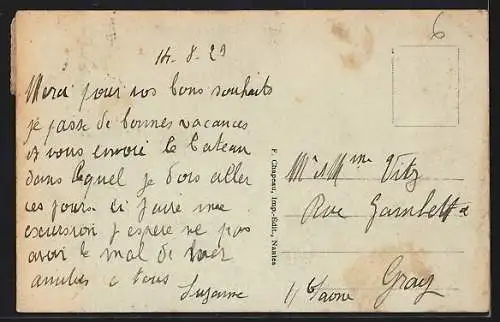 14-8-29
6
Merci pour vos bons souhaits
je passe de bonnes vacances
et vous envoie le bateau
dans lequel je dois aller
ces jours ci faire une
excursion j espère ne pas
avoir le mal de mer
amitiés a tous
Suzanne
F. Chapeau, Imp.-Édit., Nantes
Mr et Mme Vitz
Rue Gambetta
Gray
Hte Saone